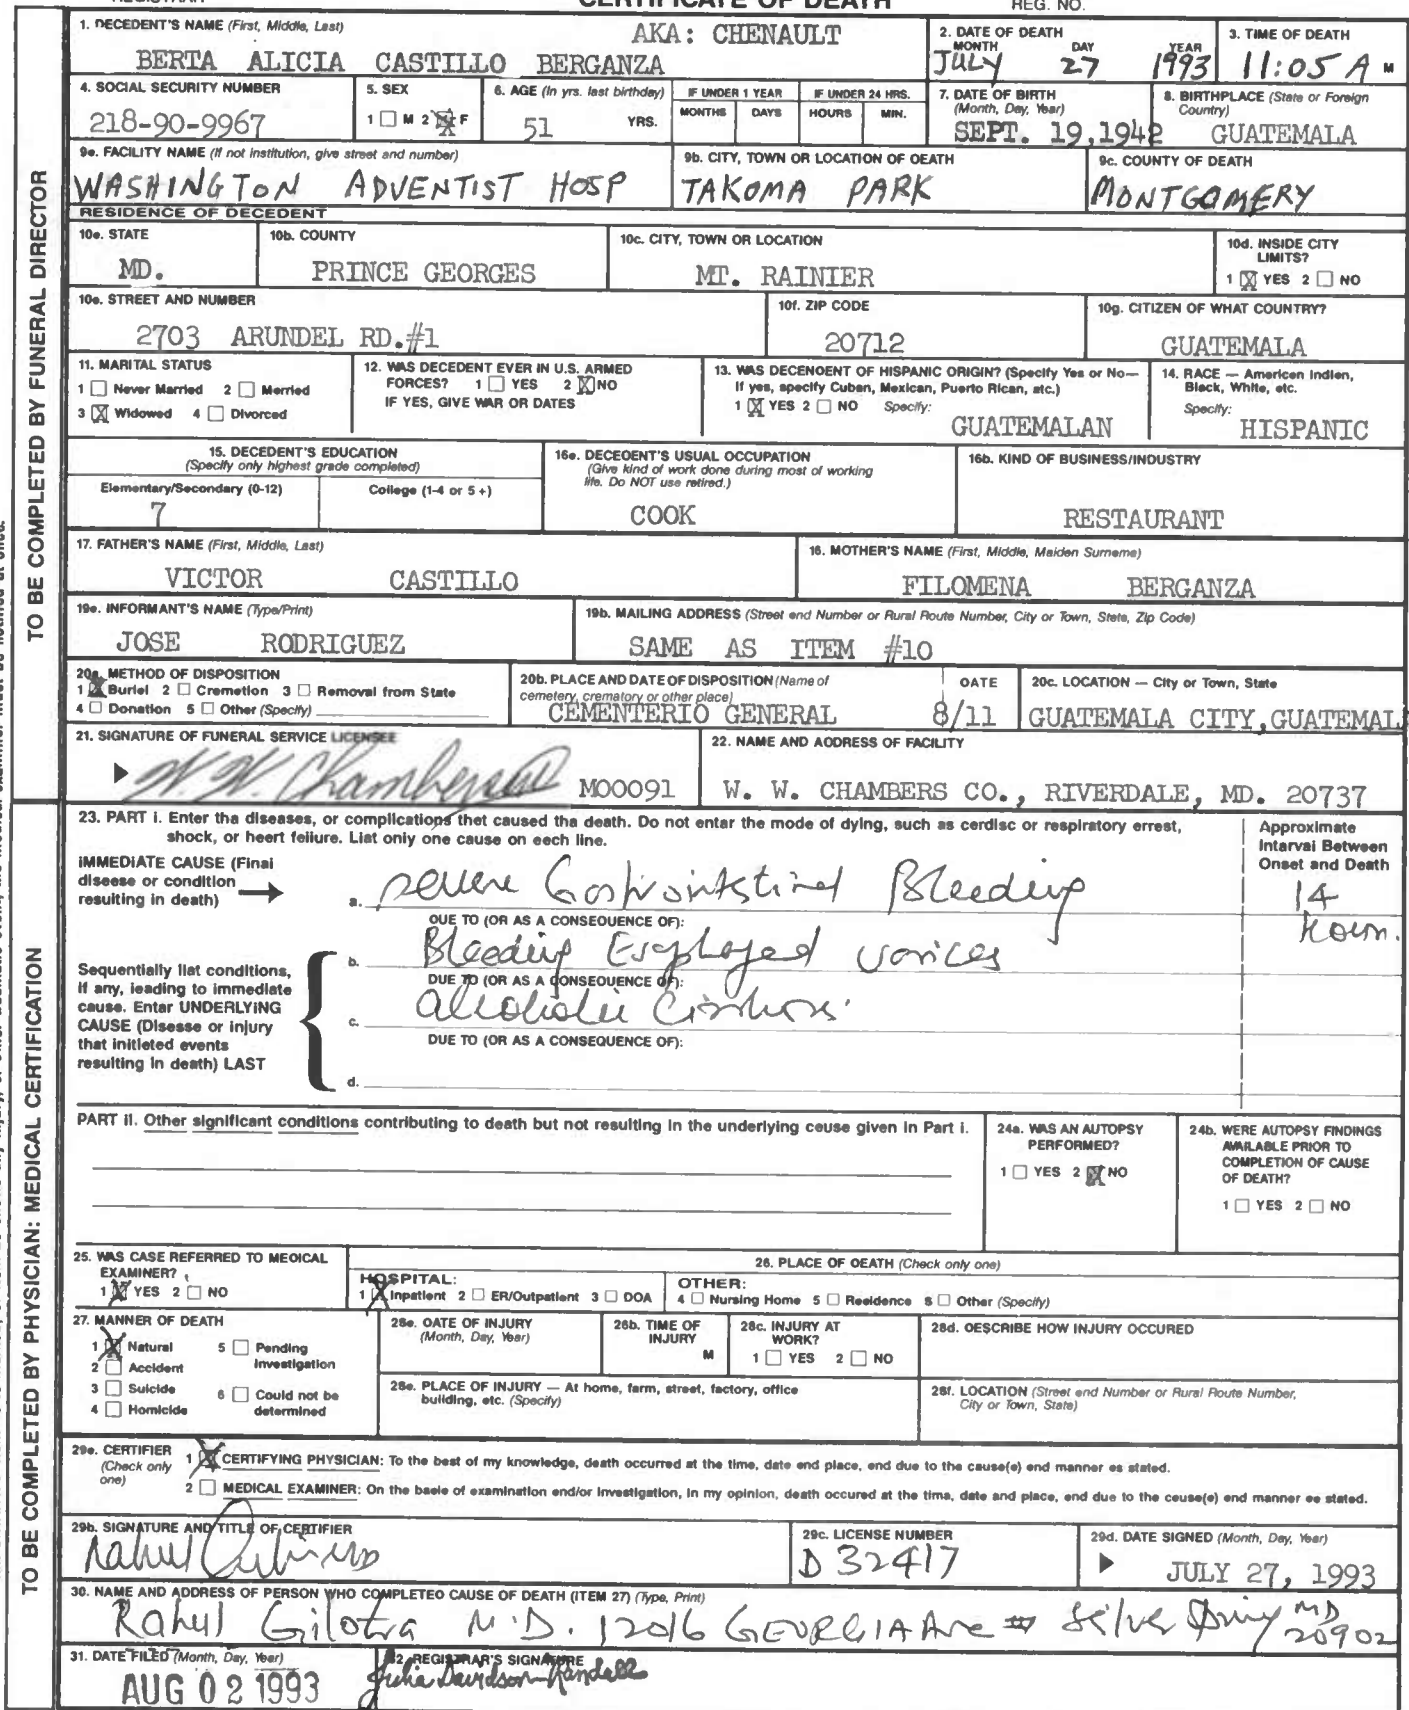 CERTIFICATE OF DEATH
REG. NO.
1. DECEDENT'S NAME (First, Middle, Last)
AKA: CHENAULT
BERTA ALICIA CASTILLO BERGANZA
2. DATE OF DEATH
MONTH DAY YEAR
JULY 27 1993
3. TIME OF DEATH
11:05 A M
4. SOCIAL SECURITY NUMBER
218-90-9967
5. SEX
1 M 2 F
6. AGE (In yrs. last birthday)
51 YRS.
IF UNDER 1 YEAR
MONTHS DAYS
IF UNDER 24 HRS.
HOURS MIN.
7. DATE OF BIRTH
(Month, Day, Year)
SEPT. 19,1942
8. BIRTHPLACE (State or Foreign
Country)
GUATEMALA
9a. FACILITY NAME (If not institution, give street and number)
WASHINGTON ADVENTIST HOSP
9b. CITY, TOWN OR LOCATION OF DEATH
TAKOMA PARK
9c. COUNTY OF DEATH
MONTGOMERY
RESIDENCE OF DECEDENT
10a. STATE
MD.
10b. COUNTY
PRINCE GEORGES
10c. CITY, TOWN OR LOCATION
MT. RAINIER
10d. INSIDE CITY
LIMITS?
1 X YES 2 NO
10e. STREET AND NUMBER
2703 ARUNDEL RD.#1
10f. ZIP CODE
20712
10g. CITIZEN OF WHAT COUNTRY?
GUATEMALA
11. MARITAL STATUS
1 Never Married 2 Married
3 X Widowed 4 Divorced
12. WAS DECEDENT EVER IN U.S. ARMED
FORCES? 1 YES 2 X NO
IF YES, GIVE WAR OR DATES
13. WAS DECENDENT OF HISPANIC ORIGIN? (Specify Yes or No—
If yes, specify Cuban, Mexican, Puerto Rican, etc.)
1 X YES 2 NO Specify:
GUATEMALAN
14. RACE — American Indien,
Bleck, White, etc.
Specify:
HISPANIC
15. DECEDENT'S EDUCATION
(Specify only highest grade completed)
Elementary/Secondary (0-12) College (1-4 or 5 +)
7
16a. DECEDENT'S USUAL OCCUPATION
(Give kind of work done during most of working
life. Do NOT use retired.)
COOK
16b. KIND OF BUSINESS/INDUSTRY
RESTAURANT
17. FATHER'S NAME (First, Middle, Last)
VICTOR CASTILLO
18. MOTHER'S NAME (First, Middle, Maiden Surname)
FILOMENA BERGANZA
19a. INFORMANT'S NAME (Type/Print)
JOSE RODRIGUEZ
19b. MAILING ADDRESS (Street end Number or Rural Route Number, City or Town, State, Zip Code)
SAME AS ITEM #10
20a. METHOD OF DISPOSITION
1 X Buriel 2 Cremetion 3 Removal from State
4 Donation 5 Other (Specify)
20b. PLACE AND DATE OF DISPOSITION (Name of
cemetery, crematory or other place)
CEMENTERIO GENERAL
DATE
8/11
20c. LOCATION — City or Town, State
GUATEMALA CITY, GUATEMAL
21. SIGNATURE OF FUNERAL SERVICE LICENSEE
W. W. Chambers M00091
22. NAME AND ADDRESS OF FACILITY
W. W. CHAMBERS CO., RIVERDALE, MD. 20737
23. PART I. Enter tha diseases, or complications thet caused tha death. Do not entar the mode of dying, such as cerdisc or respiratory errest,
shock, or heert feliure. Liat only one cause on each line.
Approximate
Intervai Between
Onset and Death
IMMEDIATE CAUSE (Finai
diseese or condition
resulting in death)
a. severe Gastrointestinal Bleeding
14
Hours.
DUE TO (OR AS A CONSEQUENCE OF):
b. Bleeding Esophageal varices
DUE TO (OR AS A CONSEQUENCE OF):
Sequentially liat conditions,
if any, leading to immediate
cause. Entar UNDERLYING
CAUSE (Disesse or injury
that initieted events
resulting in death) LAST
c. alcoholic Cirrhosis
DUE TO (OR AS A CONSEQUENCE OF):
d.
PART II. Other significant conditions contributing to death but not resulting in the underlying ceuse given in Part i.
24a. WAS AN AUTOPSY
PERFORMED?
1 YES 2 X NO
24b. WERE AUTOPSY FINDINGS
AVAILABLE PRIOR TO
COMPLETION OF CAUSE
OF DEATH?
1 YES 2 NO
25. WAS CASE REFERRED TO MEDICAL
EXAMINER?
1 X YES 2 NO
26. PLACE OF DEATH (Check only one)
HOSPITAL:
1 X Inpatient 2 ER/Outpatient 3 DOA
OTHER:
4 Nursing Home 5 Residence 6 Other (Specify)
27. MANNER OF DEATH
1 X Natural 5 Pending
Investigation
2 Accident
3 Suicide 6 Could not be
determined
4 Homicide
28a. DATE OF INJURY
(Month, Day, Year)
28b. TIME OF
INJURY
M
28c. INJURY AT
WORK?
1 YES 2 NO
28d. DESCRIBE HOW INJURY OCCURED
28e. PLACE OF INJURY — At home, farm, street, factory, office
building, etc. (Specify)
28f. LOCATION (Street end Number or Rural Route Number,
City or Town, State)
29a. CERTIFIER
(Check only
one)
1 X CERTIFYING PHYSICIAN: To the best of my knowledge, death occurred at the time, date end place, end due to the cause(e) end manner es stated.
2 MEDICAL EXAMINER: On the baele of examination end/or Investigation, in my opinion, death occured at the tima, date and place, end due to the ceuse(e) end manner ee stated.
29b. SIGNATURE AND TITLE OF CERTIFIER
Rahul
29c. LICENSE NUMBER
D 32417
29d. DATE SIGNED (Month, Day, Year)
JULY 27, 1993
30. NAME AND ADDRESS OF PERSON WHO COMPLETED CAUSE OF DEATH (ITEM 27) (Type, Print)
Rahul Gilotra M.D. 12016 GEORGIA Ave Silver Spring MD
20902
31. DATE FILED (Month, Day, Year)
AUG 02 1993
32 REGISTRAR'S SIGNATURE
Julia Davidson-Randall
TO BE COMPLETED BY FUNERAL DIRECTOR
TO BE COMPLETED BY PHYSICIAN: MEDICAL CERTIFICATION